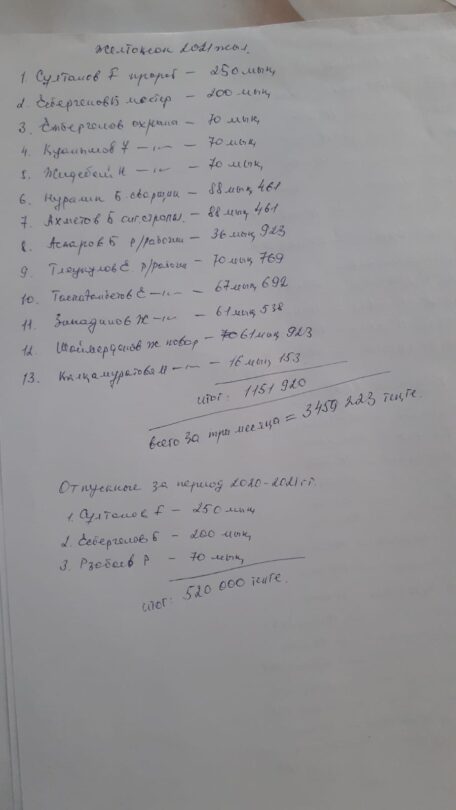 Желтоқсан 2021 жыл.
1. Султанов Г прораб – 250 мың
2. Есбергенов Б мастер – 200 мың
3. Ембергенов охрана – 70 мың
4. – 70 мың
5. Жидебай Н – 70 мың
6. Нуралин Б сварщик – 88 мың 461
7. Ахметов Б – 88 мың 461
8. Асаров Б р/рабочий – 36 мың 923
9. Е р/рабочий – 70 мың 769
10. Е – 67 мың 692
11. Ж – 61 мың 538
12. Шаймерденов Ж повар – 61 мың 923
13. Калжамуратова Н – 16 мың 153
итог: 1151 920
всего за три месяца = 3459 223 теңге.
Отпускные за период 2020-2021 гг.
1. Султанов Г – 250 мың
2. Есбергенов Б – 200 мың
3. Р – 70 мың
итог: 520 000 теңге.